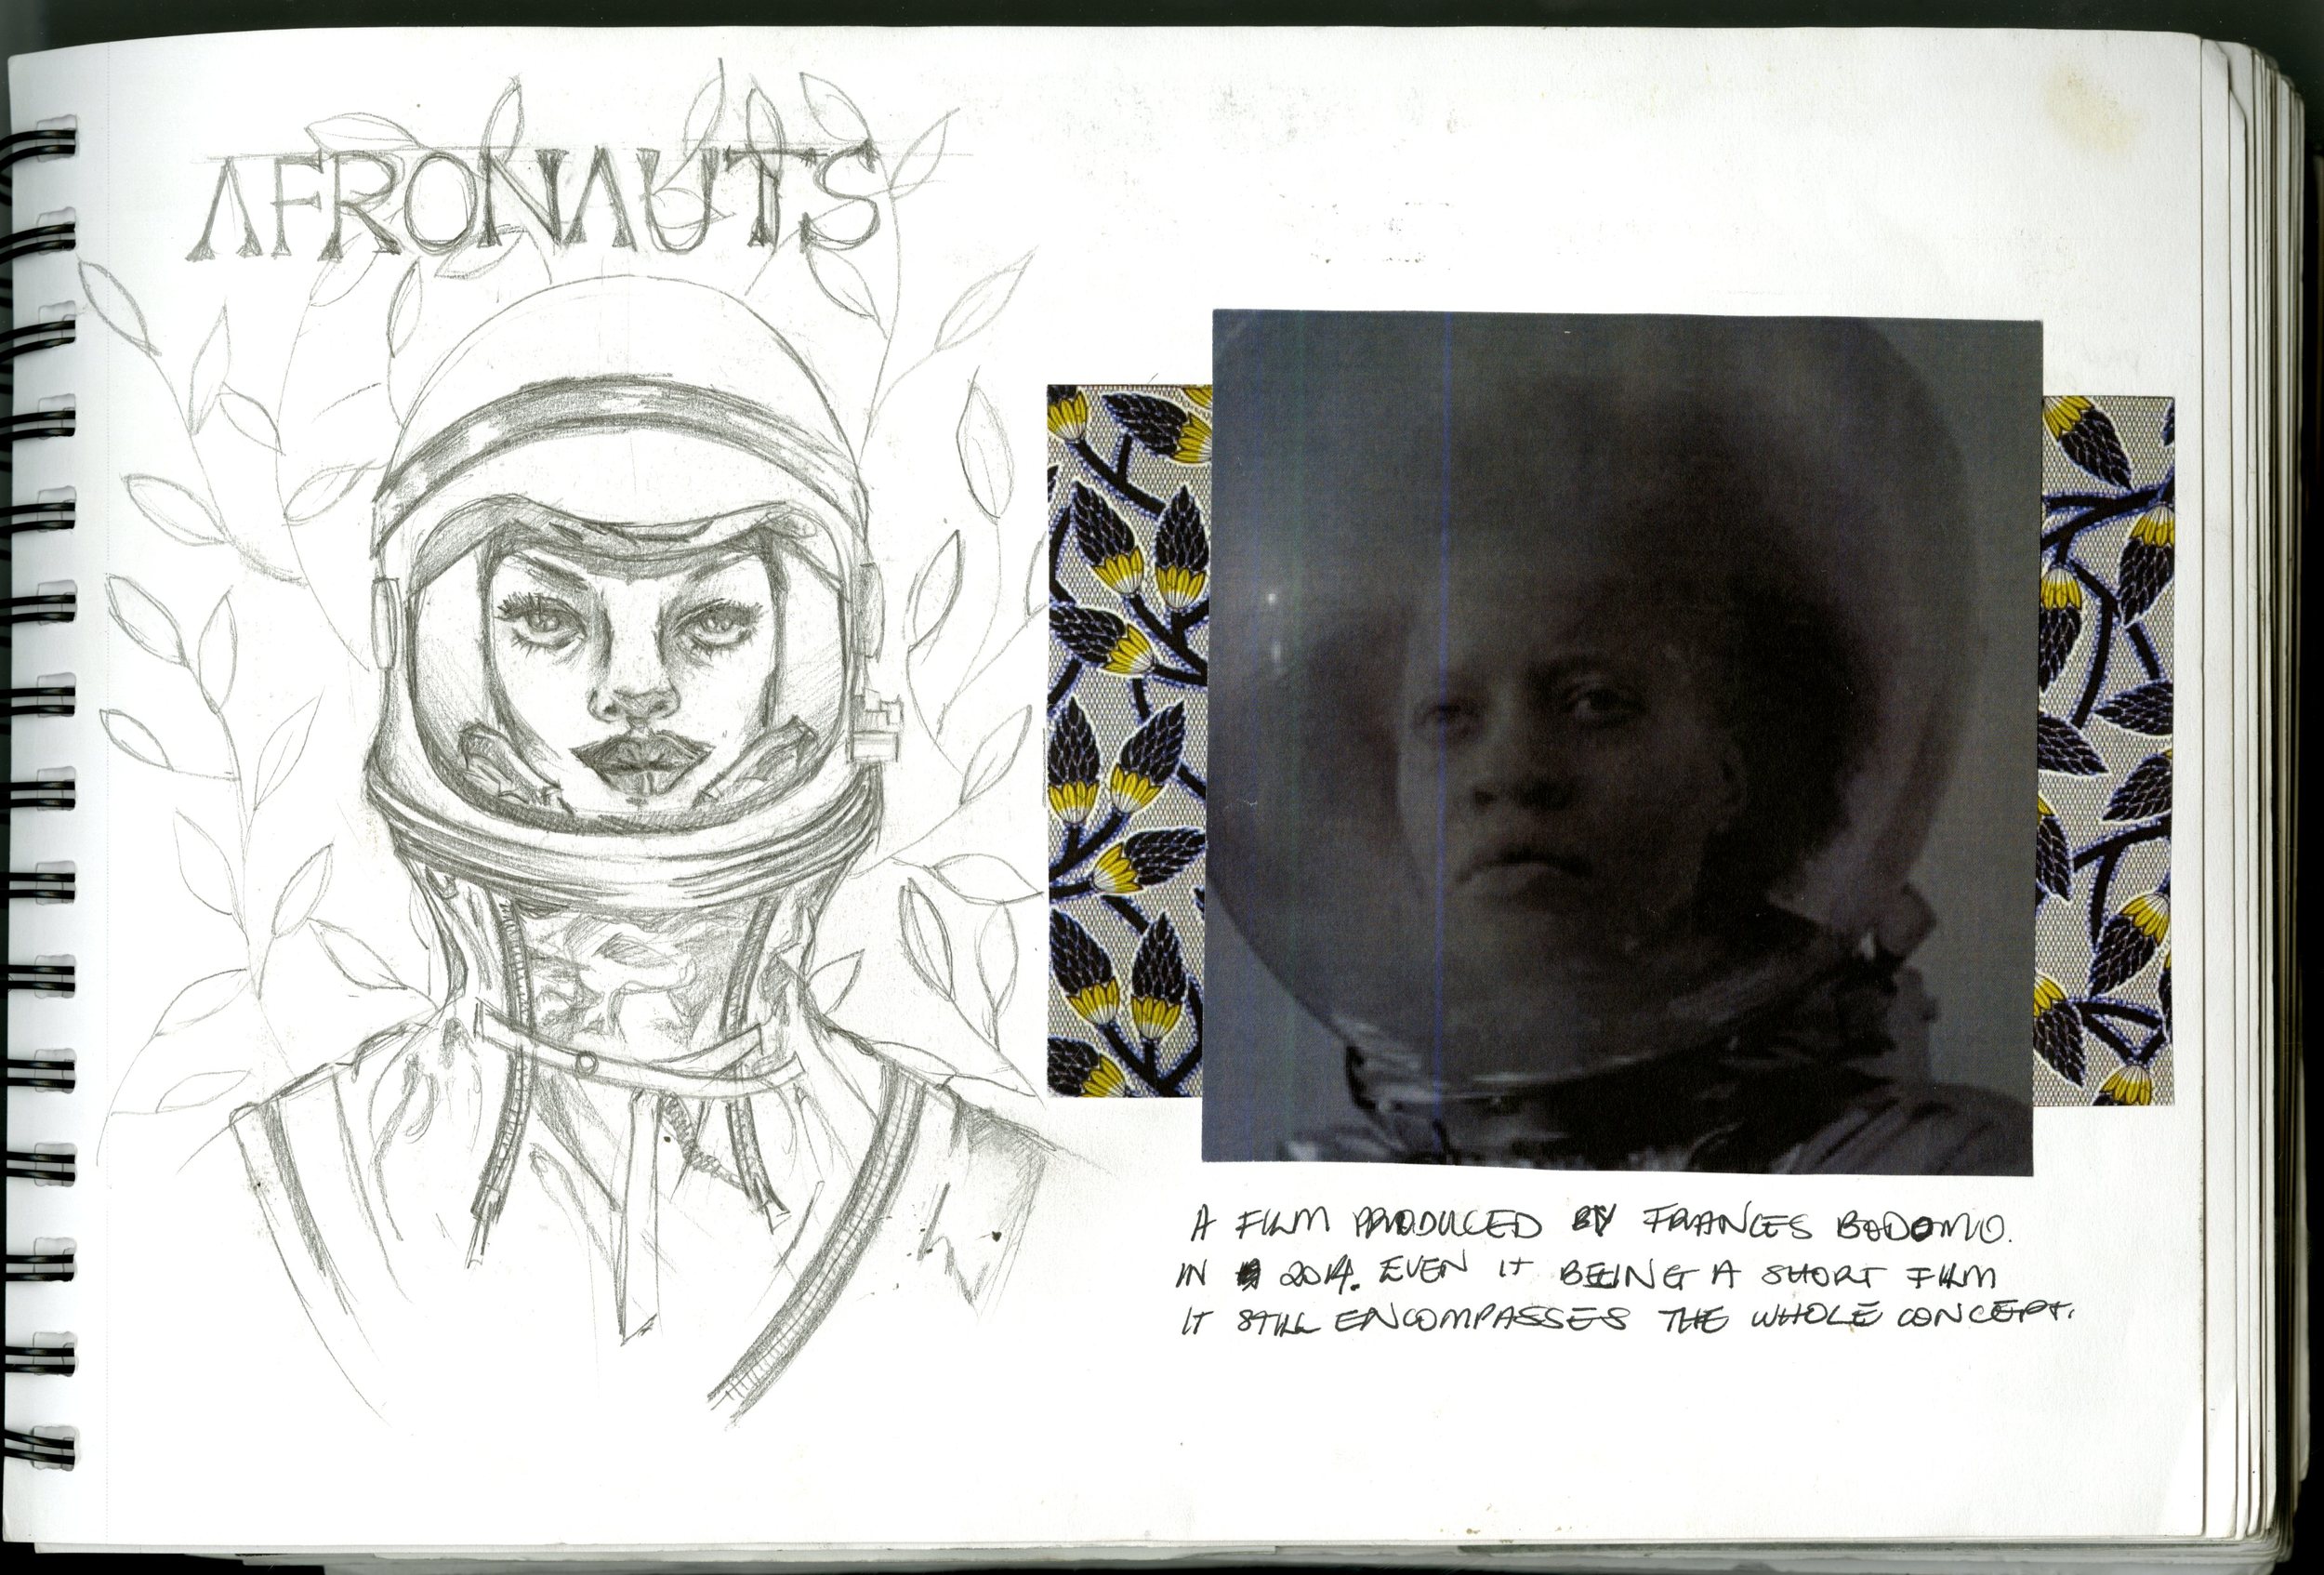 AFRONAUTS
A FILM PRODUCED BY FRANCES BODOMO.
IN 2014. EVEN IT BEING A SHORT FILM
IT STILL ENCOMPASSES THE WHOLE CONCEPT.